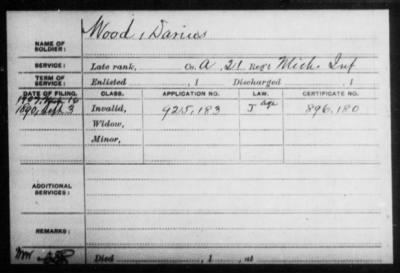 Wood, Darius
NAME OF SOLDIER:
SERVICE: Late rank, Co. A, 21 Reg't Mich. Inf
TERM OF SERVICE: Enlisted , 1 Discharged , 1
DATE OF FILING. CLASS. APPLICATION NO. LAW. CERTIFICATE NO.
1907 16
1890, Sept 3 Invalid, 925,183 J age 896,180
Widow,
Minor,
ADDITIONAL SERVICES:
REMARKS:
Died , 1 , at